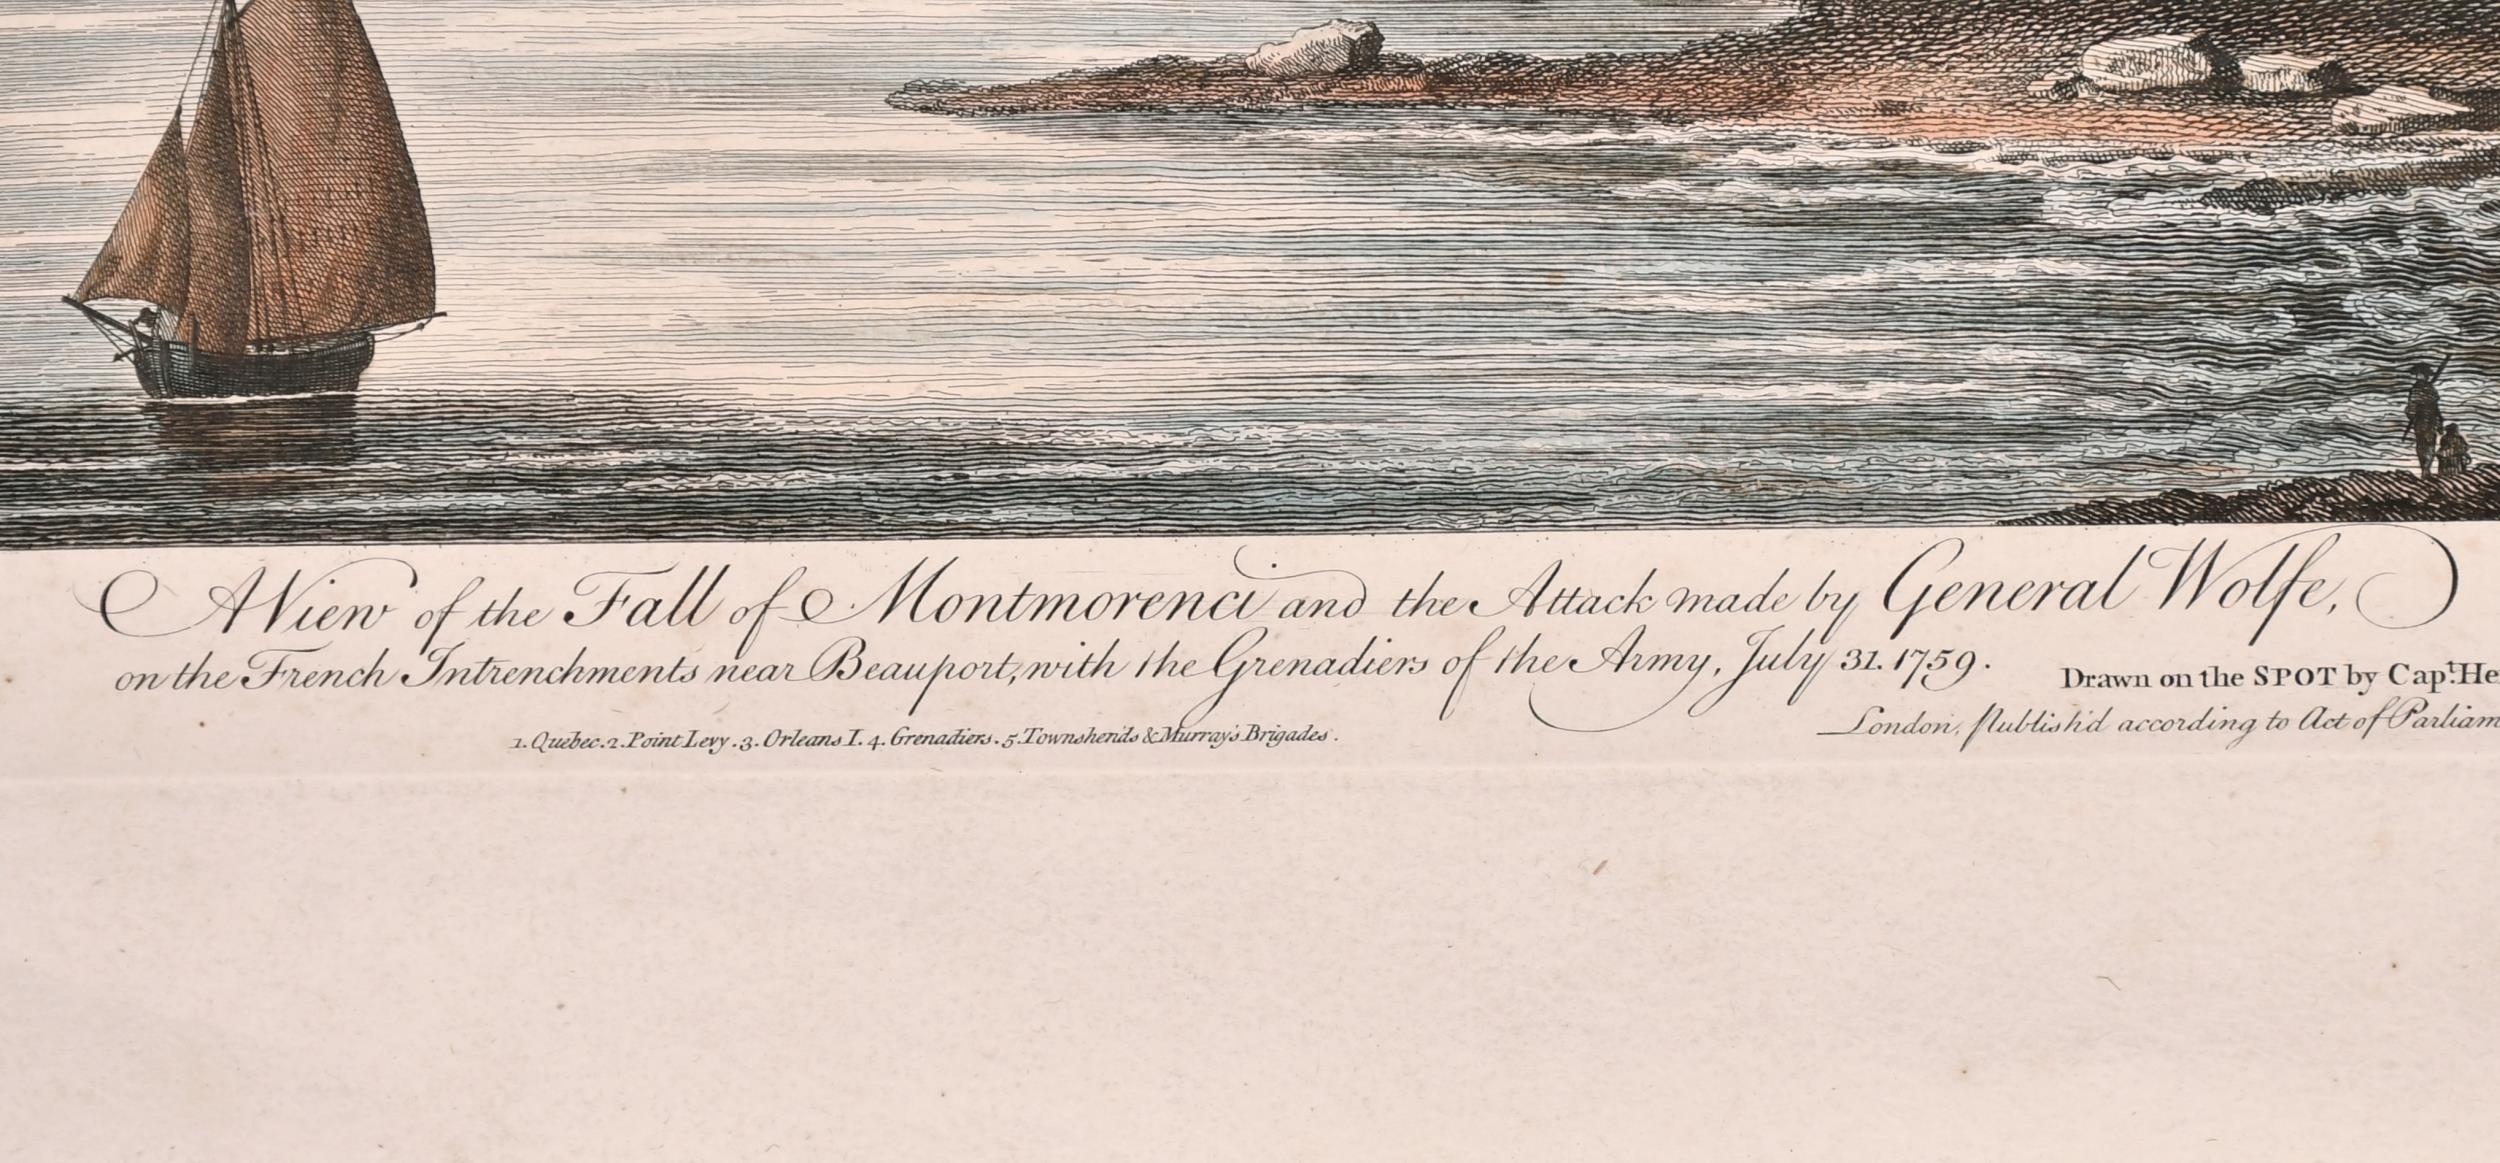 A View of the Fall of Montmorenci and the Attack made by General Wolfe,
on the French Intrenchments near Beauport, with the Grenadiers of the Army, July 31. 1759.
Drawn on the SPOT by Capt. He
1. Quebec. 2. Point Levy. 3. Orleans I. 4. Grenadiers. 5. Townshends & Murray's Brigades.
London, Publish'd according to Act of Parliam